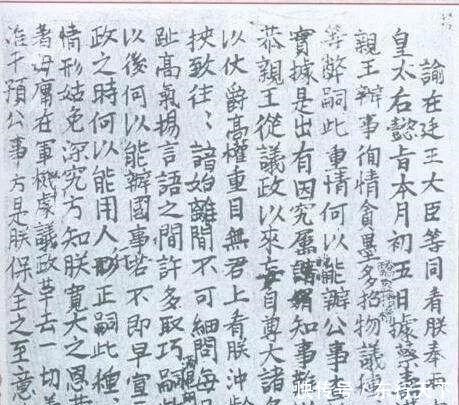 諭在廷王大臣等同看朕奉
皇太后懿旨本月初五日據蔡
親王辦事徇情貪墨多招物議
等弊嗣此重情何以能辦公事
實據是出有因究屬知事
恭親王從議政以來妄自尊大諸
以仗爵高權重目無君上看朕沖齡
挾致往〻諳始離間不可細問每
趾高氣揚言語之間許多取巧
以後何以能辦國事若不即早宣
政之時何以能用人行正嗣此種
情形姑免深究方知朕寬大之恩
著毋庸在軍機處議政革去一切
准干預公事方是朕保全之至意
快传号